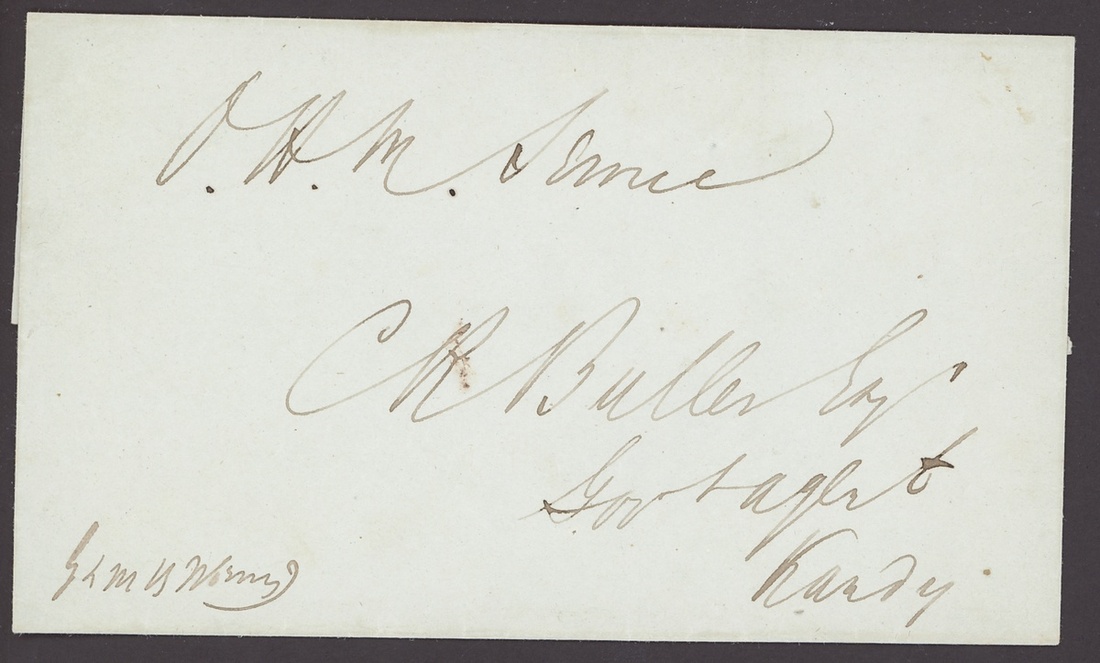 O. H. M. Service
C R Buller Esq
Govt agent
Kandy